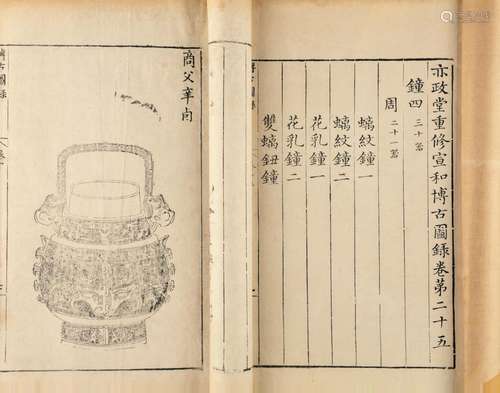 亦政堂重修宣和博古圖錄卷第二十五
鐘四 三十器
周 二十一器
蟠紋鐘一
蟠紋鐘二
花乳鐘一
花乳鐘二
雙螭鈕鐘
商父辛卣